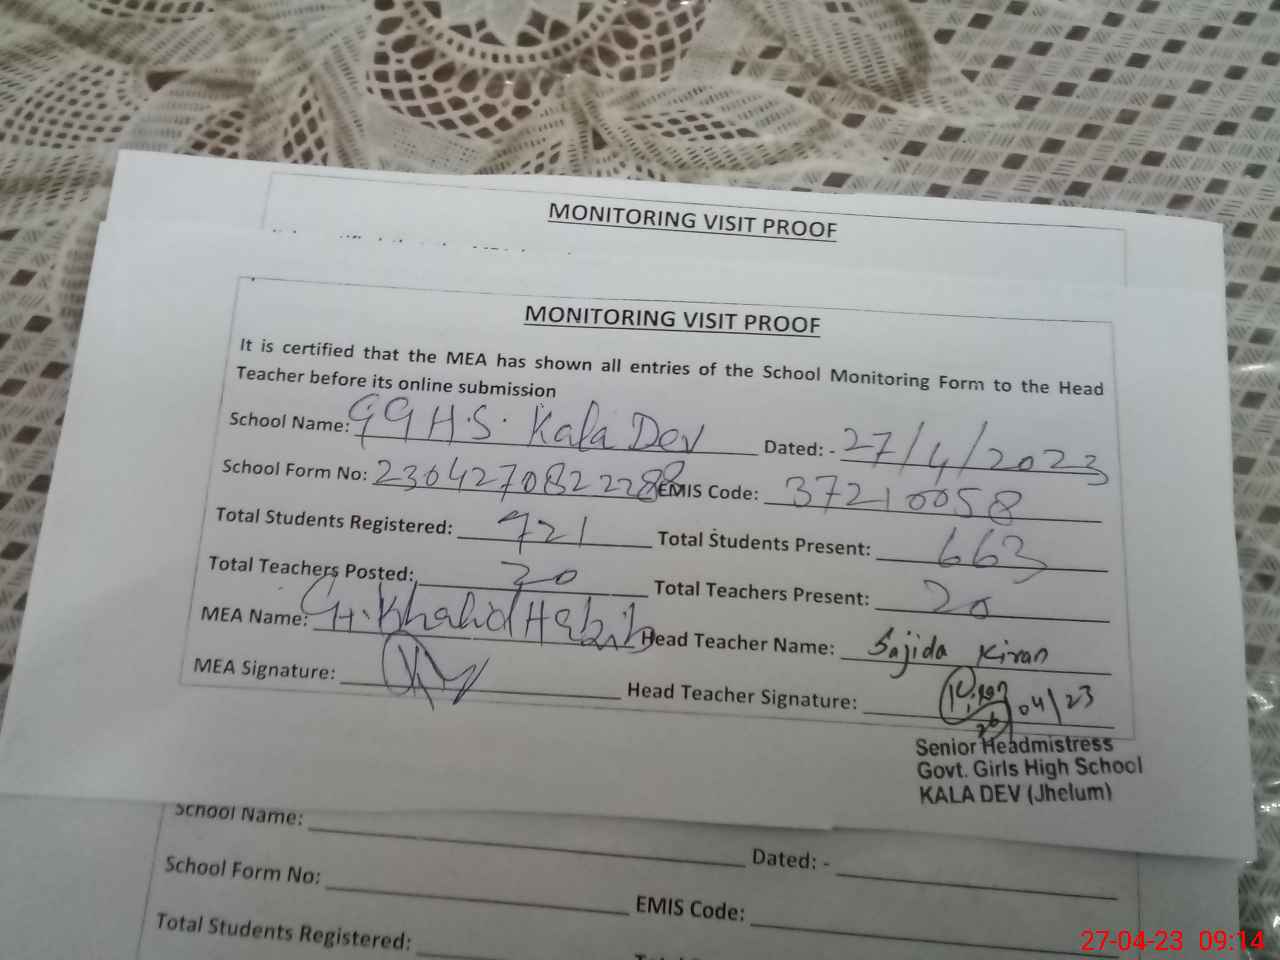 MONITORING VISIT PROOF
MONITORING VISIT PROOF
It is certified that the MEA has shown all entries of the School Monitoring Form to the Head
Teacher before its online submission
School Name: GGH.S. Kala Dev Dated: - 27/4/2023
School Form No: 2304270822288 EMIS Code: 37210058
Total Students Registered: 721 Total Students Present: 663
Total Teachers Posted: 20 Total Teachers Present: 20
MEA Name: Gh. Khalid Habib Head Teacher Name: Sajida Kiran
MEA Signature: Head Teacher Signature: Kiran 26/04/23
Senior Headmistress
Govt. Girls High School
KALA DEV (Jhelum)
School Name: Dated: -
School Form No: EMIS Code:
Total Students Registered:
27-04-23 09:14